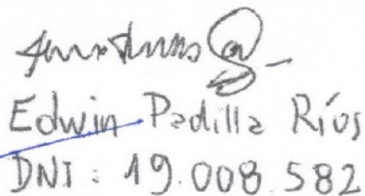 Edwin Padilla Ríos
DNI: 19.008.582